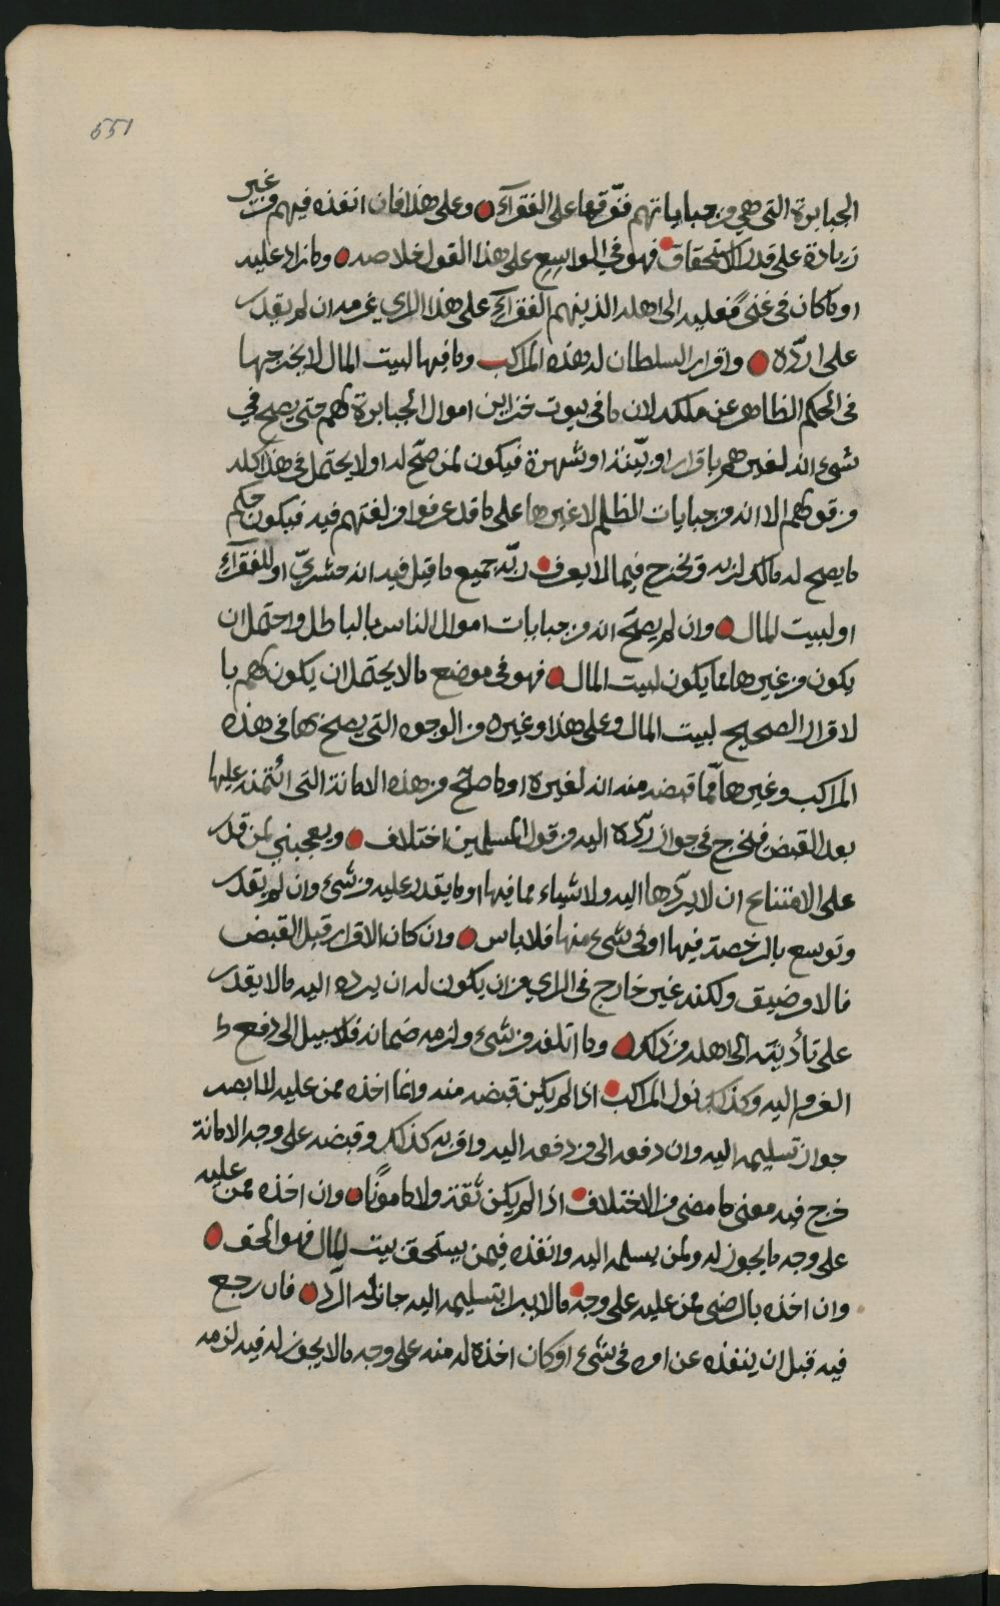 551
الجبابرة التي هي من جباياتهم ففرقها على الفقرآء وعلى هذا فان انفذه فيهم من غير
زيادة على قدر الاستحقاق فهو في الواسع على هذا القول خلاصه وما زاد عليه
او ما كان في غنى فعليه الى اهله الذين هم الفقرآء على هذا الراي غرمه ان لم يقدر
على ردّه واقرار السلطان له هذه المراكب وما فيها لبيت المال لا يخرجها
في الحكم الظاهر عن ملكه لان ما في بيوت خزاين اموال الجبابرة لهم حتى يصح في
شيء انه لغيرهم باقرار او بيّنة او شهرة فيكون لمن صحّ له او لا يحتمل في هذا كله
من قولهم الا انه من جبايات الظلم لا غيرها على ما قد عرفوا من لغتهم فيه فيكون حكم
ما يصح له مالك لربه ويخرج فيما لا يعرف ربّه جميع ما قيل فيه انه حشريّ او للفقرآء
او لبيت المال وان لم يصحّ انه من جبايات اموال الناس بالباطل واحتمل ان
يكون من غيرها مما يكون لبيت المال فهو في موضع ما لا يحتمل ان يكون لهم با
لاقرار الصحيح لبيت المال وعلى هذا وغيره من الوجوه التي يصح بها في هذه
المراكب وغيرها ممّا قبضه منه انه لغيره او ما صحّ من هذه الامانة التي ائتمنه عليها
بعد القبض فيخرج في جواز ردّه اليه من قول المسلمين اختلاف ويعجبني لمن قدر
على الامتناع ان لا يردّها اليه ولا شياء مما فيها او ما يقدر عليه من شيء وان لم يقدر
وتوسع بالرخصة فيها او في شيء منها فلا باس وان كان الاقرار قبل القبض
فالامر ضيق ولكنه غير خارج في الراي من ان يكون له ان يرده اليه ما لا يقدر
على تأديته الى اهله من ذلك وما اتلفه من شيء ولزمه ضمانه فلا سبيل الى دفع
الغرم اليه وكذلك نول المراكب اذا لم يكن قبضه منه وانما اخذه ممن عليه لا ابصر
جواز تسليمه اليه وان دفعه الى من دفعه اليه واقر به كذلك وقبضه على وجه الامانة
خرج فيه معنى ما مضى من الاختلاف اذا لم يكن ثقة ولا مامونًا وان اخذه ممن عليه
على وجه ما يجوز له ولمن يسلمه اليه وانفذه فيمن يستحق بيت المال فهو الحق
وان اخذه بالرضى ممن عليه على وجه ما لا يبرا بتسليمه اليه جاز له الردّ فان رجع
فيه قبل ان ينفذه عن امره في شيء او كان اخذه له منه على وجه ما لا يجوز له فيه لزمه